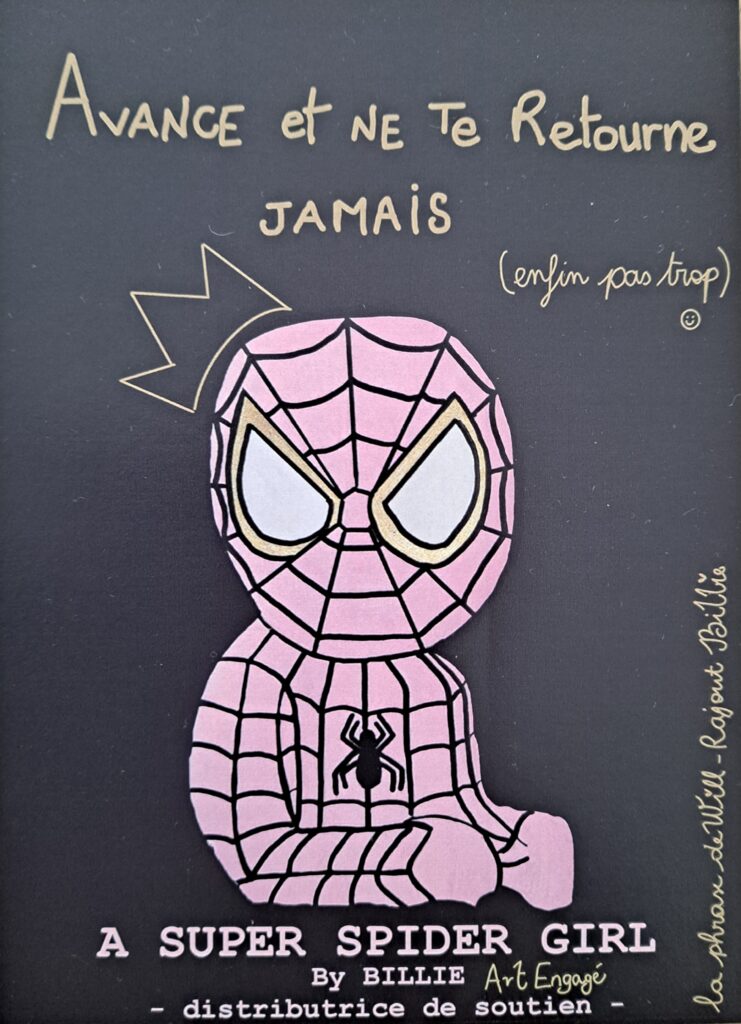 AVANCE et NE Te Retourne
JAMAIS
(enfin pas trop)
☺
A SUPER SPIDER GIRL
By BILLIE Art Engagé
- distributrice de soutien -
la phrase de Will - Rajout Billie